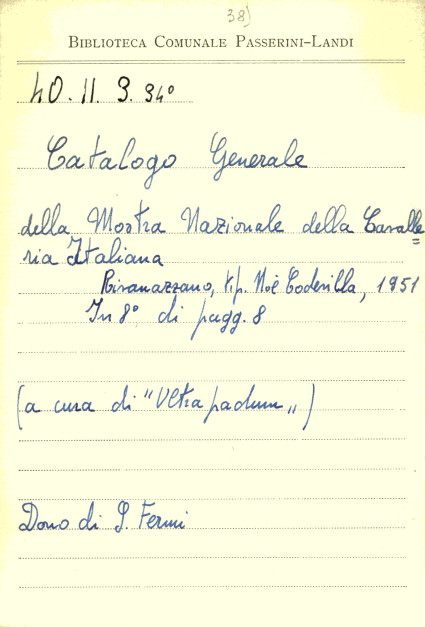 38)
BIBLIOTECA COMUNALE PASSERINI-LANDI
40.II.9.34°
Catalogo Generale
della Mostra Nazionale della Cavalle=
ria Italiana
Rivanazzano, tip. Noè Codevilla, 1951
In 8° di pagg. 8
(a cura di "Ultrapadum")
Dono di S. Fermi